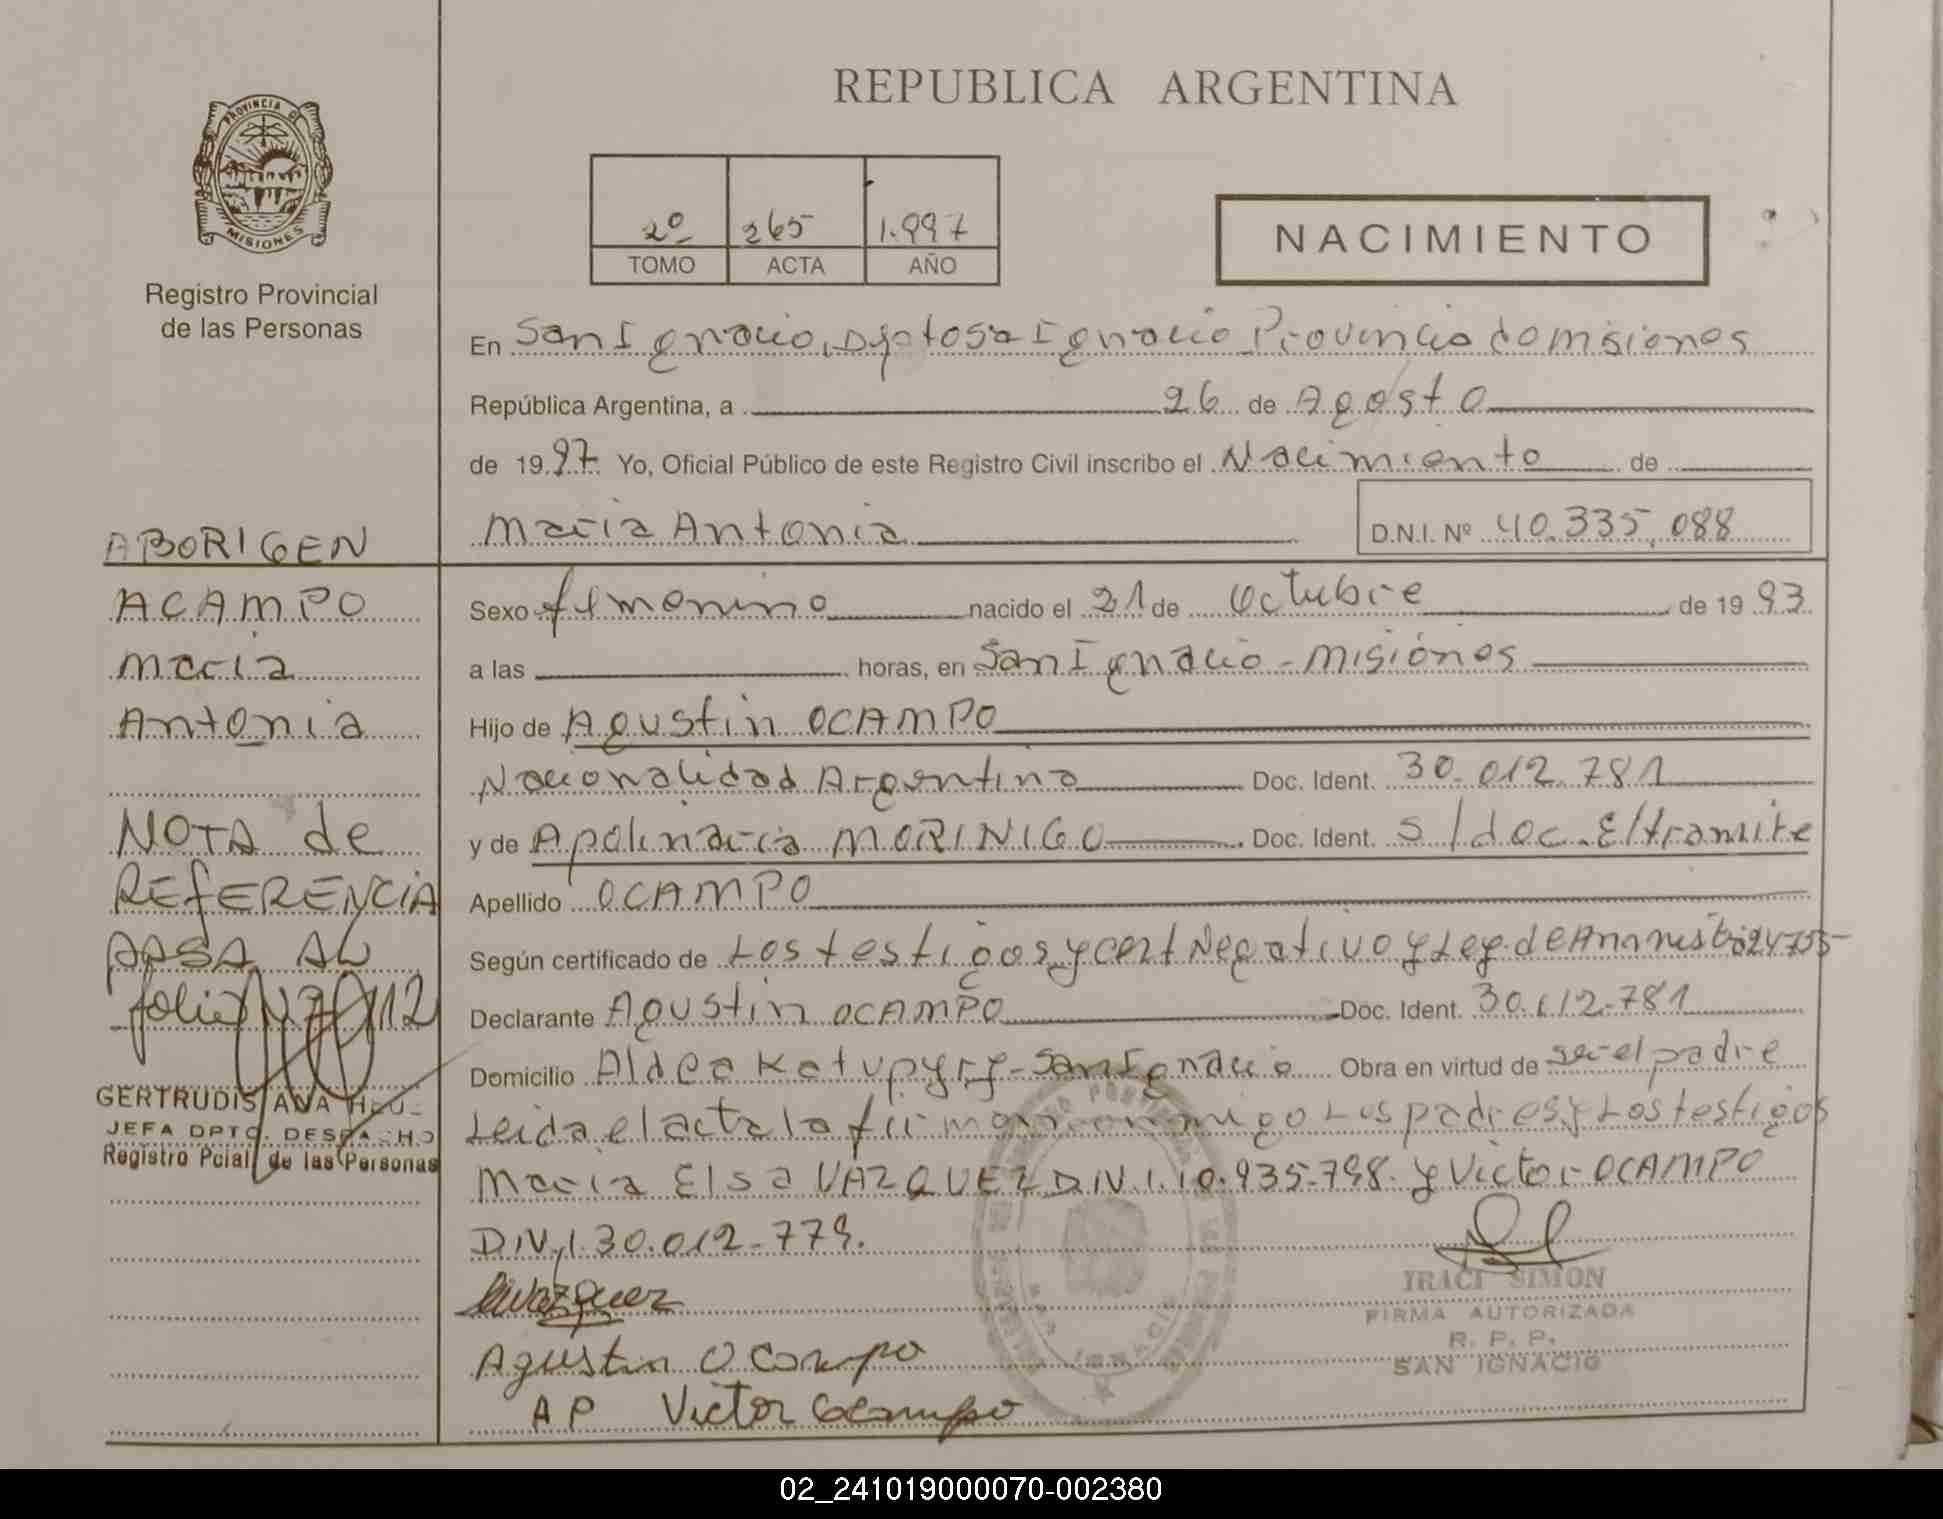 REPUBLICA ARGENTINA
PROVINCIA DE
MISIONES
Registro Provincial
de las Personas
2º 265 1.997
TOMO ACTA AÑO
NACIMIENTO
En San Ignacio, Dpto Sa Ignacio Provincia de Misiones
República Argentina, a 26 de Agosto
de 1997 Yo, Oficial Público de este Registro Civil inscribo el Nacimiento de
Maria Antonia D.N.I. Nº 40.335.088
ABORIGEN
ACAMPO
Maria
Antonia
NOTA de
REFERENCIA
PASA AL
folio Nº 112
GERTRUDIS ANA
JEFA DPTO. DESPACHO
Registro Pcial de las Personas
Sexo femenino nacido el 21 de Octubre de 1993
a las horas, en San Ignacio - Misiones
Hijo de Agustin OCAMPO
Nacionalidad Argentina Doc. Ident. 30.012.781
y de Apolinaria MORINIGO Doc. Ident. S/doc. E/tramite
Apellido OCAMPO
Según certificado de Los testigos y cert Negativo y Ley de Amnistia 24755
Declarante Agustin OCAMPO Doc. Ident. 30.012.781
Domicilio Aldea Katupyry - San Ignacio Obra en virtud de ser el padre
Leida el acta la firman conmigo Los padres y Los testigos
Maria Elsa VAZQUEZ D.N.I. 10.935.798. y Victor OCAMPO
D.N.I. 30.012.779.
Vazquez
Agustin Ocampo
AP Victor Ocampo
IRACI SIMON
FIRMA AUTORIZADA
R. P. P.
SAN IGNACIO
02_241019000070-002380